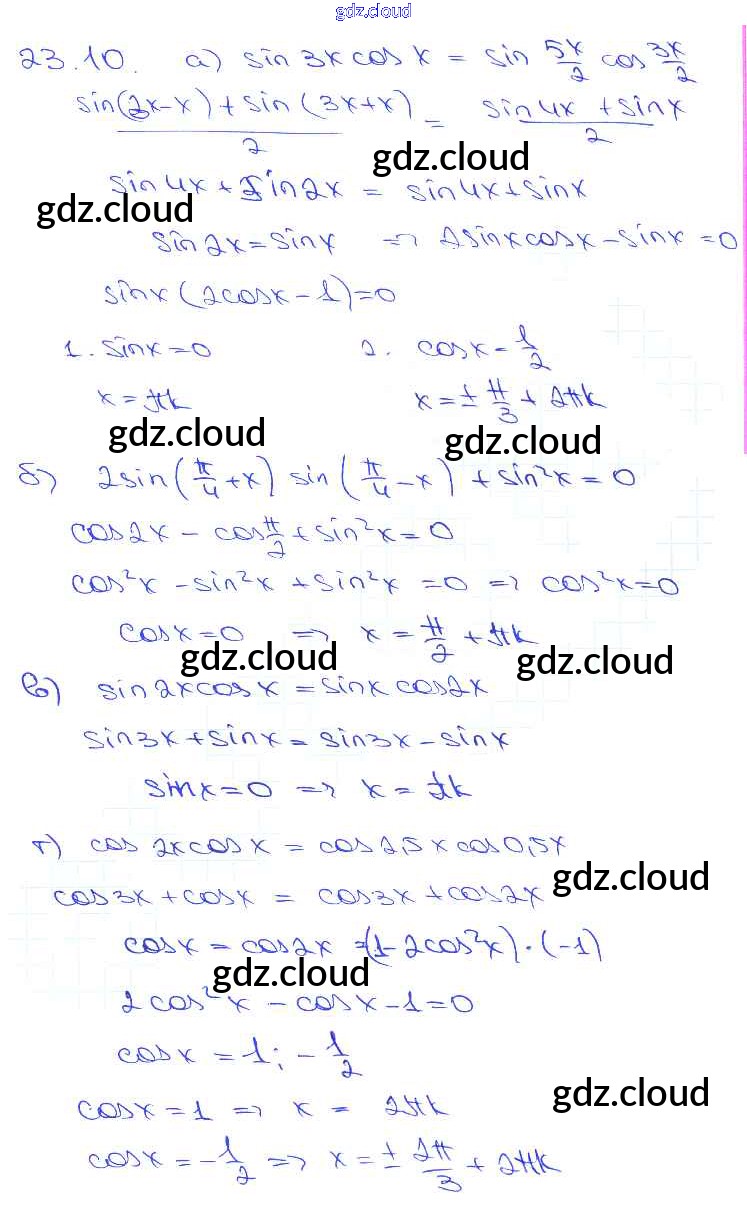 gdz.cloud
23.10. а) sin 3x cos x = sin 5x/2 cos 3x/2
(sin(3x-x) + sin(3x+x))/2 = (sin4x + sinx)/2
gdz.cloud
sin4x + sin2x = sin4x + sinx
gdz.cloud
sin2x = sinx => 2sinxcosx - sinx = 0
sinx(2cosx - 1) = 0
1. sinx = 0 2. cosx = 1/2
x = πk x = ± π/3 + 2πk
gdz.cloud gdz.cloud
б) 2sin(π/4 + x) sin(π/4 - x) + sin²x = 0
cos2x - cosπ/2 + sin²x = 0
cos²x - sin²x + sin²x = 0 => cos²x = 0
cosx = 0 => x = π/2 + πk
gdz.cloud gdz.cloud
в) sin2xcosx = sinxcos2x
sin3x + sinx = sin3x - sinx
sinx = 0 => x = πk
г) cos2xcosx = cos2,5xcos0,5x
gdz.cloud
cos3x + cosx = cos3x + cos2x
cosx = cos2x = (1-2cos²x)·(-1)
gdz.cloud
2cos²x - cosx - 1 = 0
cosx = 1; -1/2
gdz.cloud
cosx = 1 => x = 2πk
cosx = -1/2 => x = ± 2π/3 + 2πk